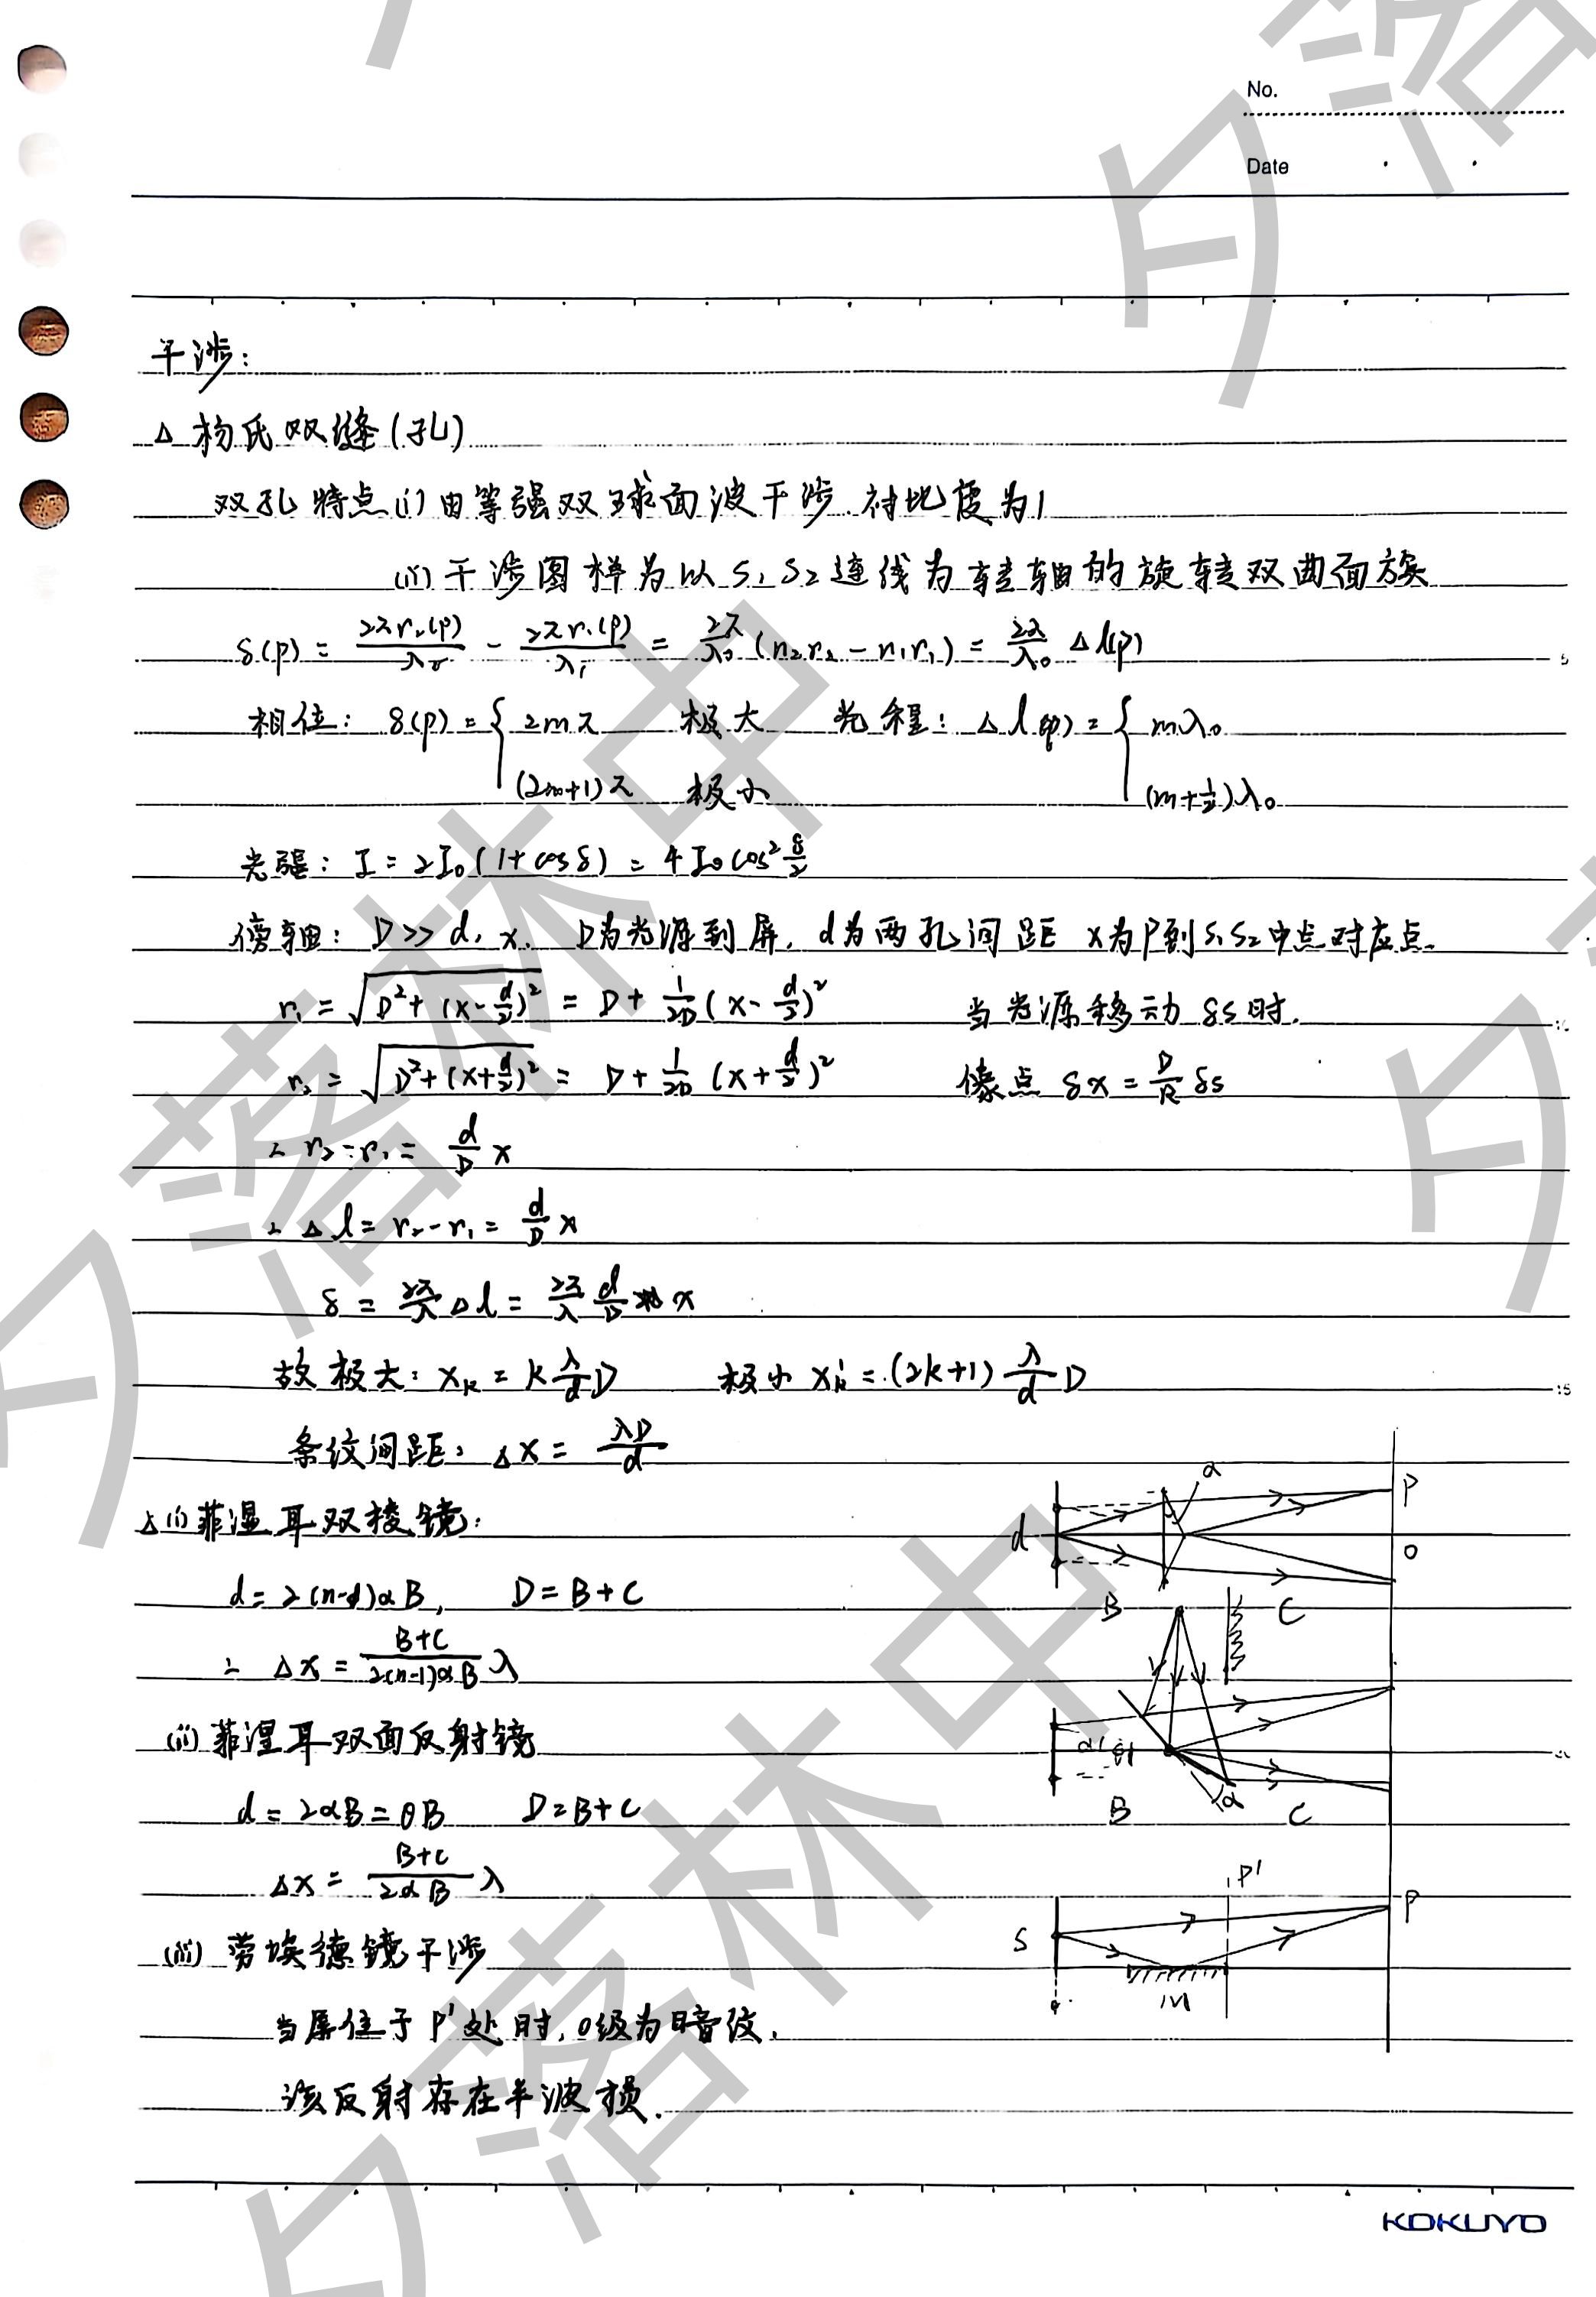 No.
Date
干涉:
△ 杨氏双缝(孔)
双孔特点 (i) 由等强双球面波干涉.衬比度为1
(ii) 干涉图样为以S₁S₂连线为转轴的旋转双曲面族
δ(p) = 2πr₂(p)/λ₂ - 2πr₁(p)/λ₁ = 2π/λ₀ (n₂r₂ - n₁r₁) = 2π/λ₀ Δl(p)
相位: δ(p) = { 2mπ 极大 光程: Δl(p) = { mλ₀
(2m+1)π 极小 (m+1/2)λ₀
光强: I = 2I₀(1+cosδ) = 4I₀cos² δ/2
傍轴: D>>d, x. D为光源到屏, d为两孔间距 x为P到S₁S₂中点对应点.
r₁ = √(D²+(x-d/2)²) = D + 1/2D (x-d/2)² 当光源移动 δs时.
r₂ = √(D²+(x+d/2)²) = D + 1/2D (x+d/2)² 像点 δx = D/R δs
∴ r₂-r₁ = d/D x
∴ Δl = r₂-r₁ = d/D x
δ = 2π/λ Δl = 2π/λ d/D x
故极大: xₖ = k λ/d D 极小 xₖ' = (2k+1) λ/d D
条纹间距: Δx = λD/d
△(i) 菲涅耳双棱镜:
d = 2(n-1)αB, D = B+C
∴ Δx = B+C/2(n-1)αB λ
(ii) 菲涅耳双面反射镜
d = 2αB = θB D = B+C
Δx = B+C/2αB λ
(iii) 劳埃德镜干涉
当屏位于P'处时, 0级为暗纹.
该反射存在半波损.
α
P
d
O
B
C
d
θ
B
α
C
P'
P
S
M
KOKUYO
夕落林中
夕落林中
夕落
夕